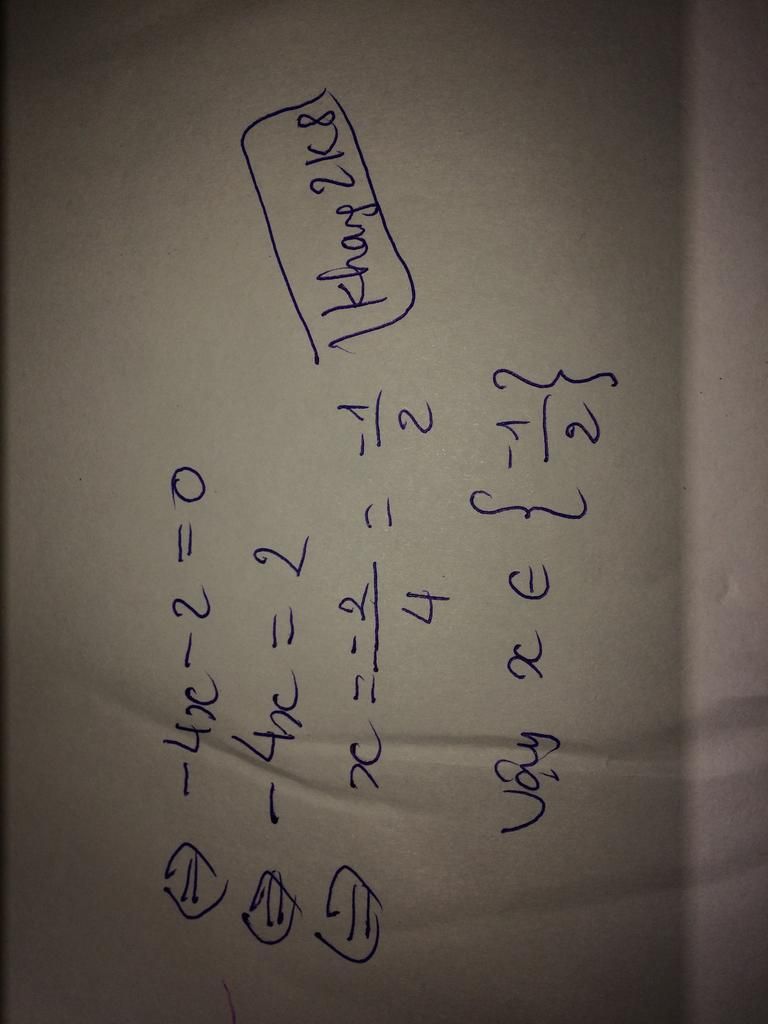 ⇔ -4x - 2 = 0
⇔ -4x = 2
⇔ x = -2/4 = -1/2
Vậy x ∈ {-1/2}
Khang 2K8